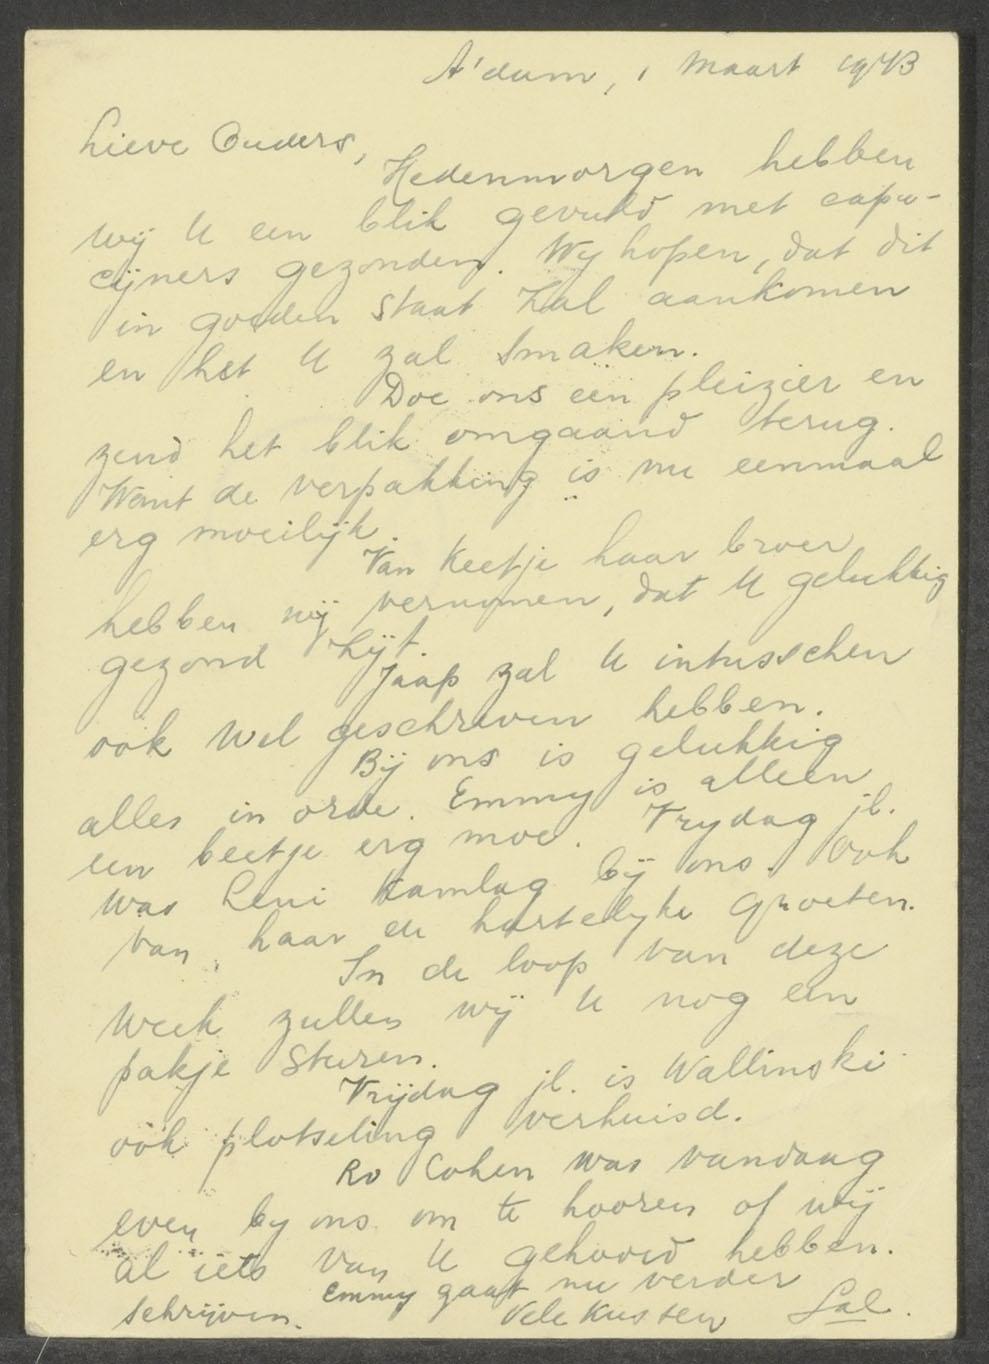 A'dam, 1 Maart 1943
Lieve Ouders,
Hedenmorgen hebben
wij U een blik gevuld met capu-
cijners gezonden. Wy hopen, dat dit
in goeden staat zal aankomen
en het U zal smaken.
Doe ons een pleizier en
zend het blik omgaand terug.
Want de verpakking is nu eenmaal
erg moeilijk.
Van Keetje haar broer
hebben wij vernomen, dat U gelukkig
gezond zijt.
Jaap zal U intusschen
ook wel geschreven hebben.
Bij ons is gelukkig
alles in orde. Emmy is alleen
een beetje erg moe. Vrydag jl.
was Leni Kamlag bij ons. Ook
van haar de hartelyke groeten.
In de loop van deze
week zullen wij U nog een
pakje sturen.
Vrijdag jl. is Wallinski
ook plotseling verhuisd.
Ro Cohen was vandaag
even by ons om te hooren of wij
al iets van U gehoord hebben.
Emmy gaat nu verder
schrijven. Vele Kussen Sal.